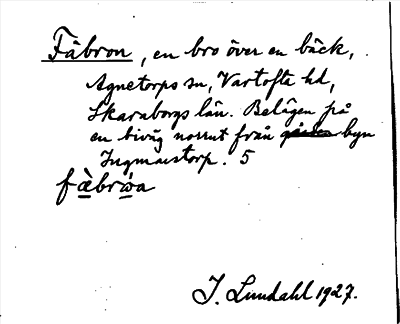 Fäbron, en bro över en bäck,
Agnetorps sn, Vartofta hd,
Skaraborgs län. Belägen på
en biväg norrut från byn
Ingmarstorp. 5
fæ̀brὼa
I. Lundahl 1927.